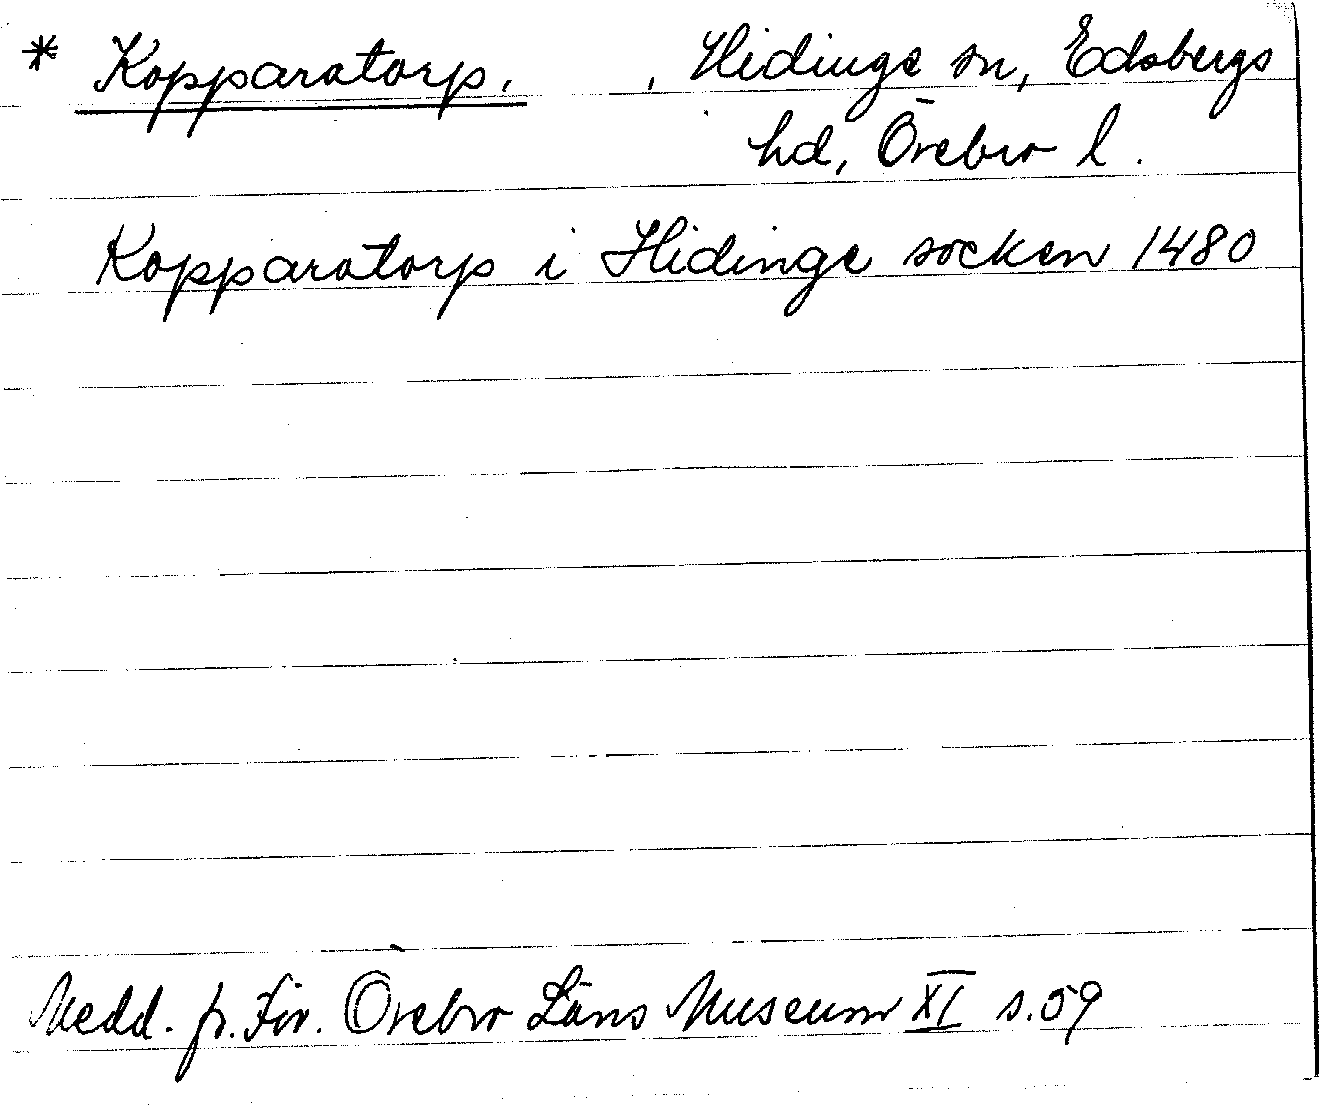 * Kopparatorp. , Hidinge sn, Edsbergs
hd, Örebro l.
Kopparatorp i Hidinge socken 1480
Medd. fr. För. Örebro Läns Museum XI s. 59